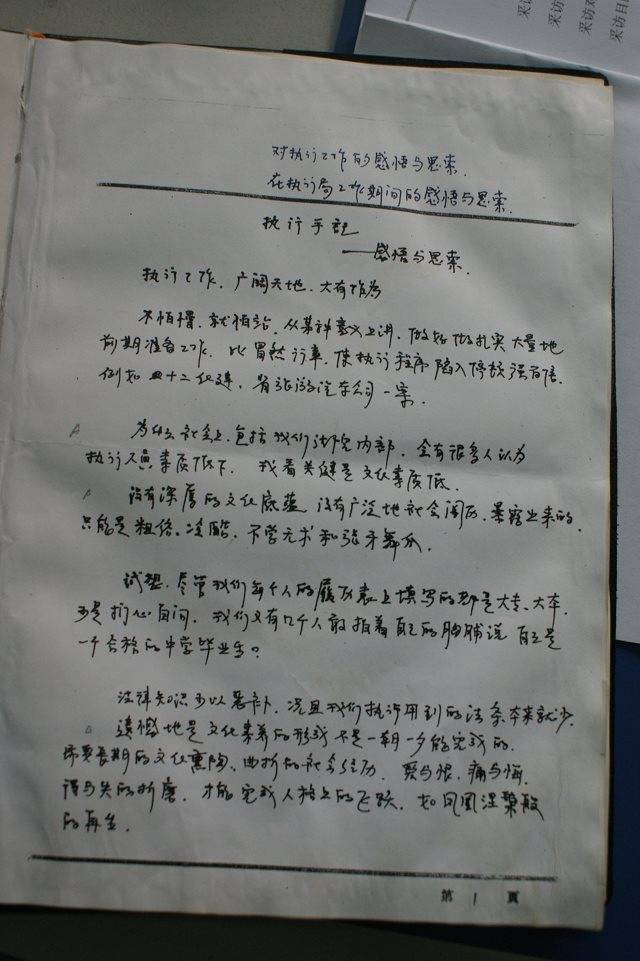 采访
采访
采访对
采访日
对执行工作的感悟与思索.
在执行局工作期间的感悟与思索.
执行手記
——感悟与思索.
执行工作, 广阔天地, 大有作为
不怕慢, 就怕站, 从某种意义上讲, 做好做扎实大量地
前期准备工作, 比冒然行事, 使执行程序陷入停顿强百倍.
例如四十二 汽车公司一案.
为什么社会上, 包括我们法院内部, 会有很多人认为
执行人员素质低下. 我看关健是文化素质低.
没有深厚的文化底蕴, 没有广泛地社会阅历, 暴露出来的
只能是粗俗、冷酷, 不学无术和张牙舞爪.
试想, 尽管我们每个人的履历表上填写的都是大专、大本.
可是扪心自问, 我们又有几个人敢拍着自己的胸脯说 自己是
一个合格的中学毕业生?
法律知识可以恶补, 况且我们执行用到的法条本来就少.
遗憾地是文化素养的形成不是一朝一夕能完成的.
需要长期的文化熏陶, 曲折的社会经历, 爱与恨, 痛与悔,
得与失的折磨, 才能完成人格上的飞跃, 如凤凰涅槃般
的再生.
第 1 頁